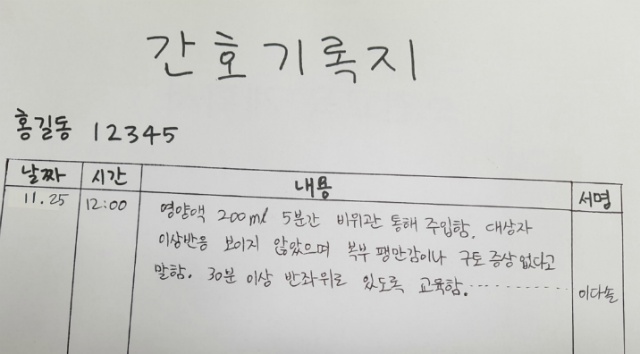 간호기록지
홍길동 12345
날짜 시간 내용 서명
11.25 12:00 영양액 200ml 5분간 비위관 통해 주입함. 대상자
이상반응 보이지 않았으며 복부 팽만감이나 구토 증상 없다고
말함. 30분 이상 반좌위로 있도록 교육함. 이다솔